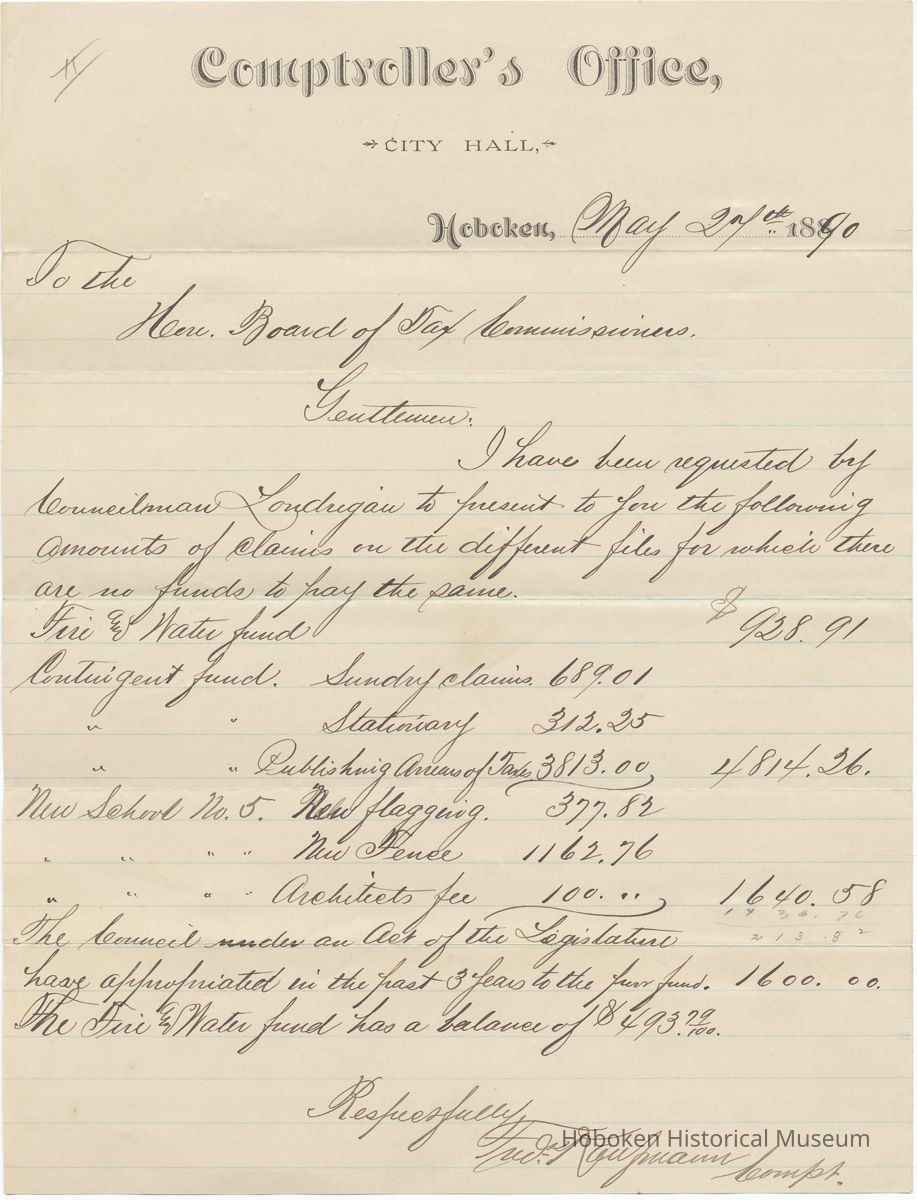 Comptroller's Office,
CITY HALL,
Hoboken, May 27th 1890
To the
Hon. Board of Tax Commissioners.
Gentlemen:
I have been requested by
Councilman Londrigan to present to you the following
amounts of claims on the different files for which there
are no funds to pay the same.
Fire & Water fund $928.91
Contingent fund. Sundry claims. 689.01
" " Stationary 312.25
" " Publishing Arrears of Taxes 3813.00 4814.26.
New School No. 5. New flagging. 377.82
" " " " New Fence 1162.76
" " " " Architects fee 100. .. 1640.58
1436.76
The Council under an Act of the Legislature 213.82
have appropriated in the past 3 years to the poor fund. 1600.00.
The Fire & Water fund has a balance of $493.79/100.
Respectfully
Fred. Kaufmann
Compt.
Hoboken Historical Museum